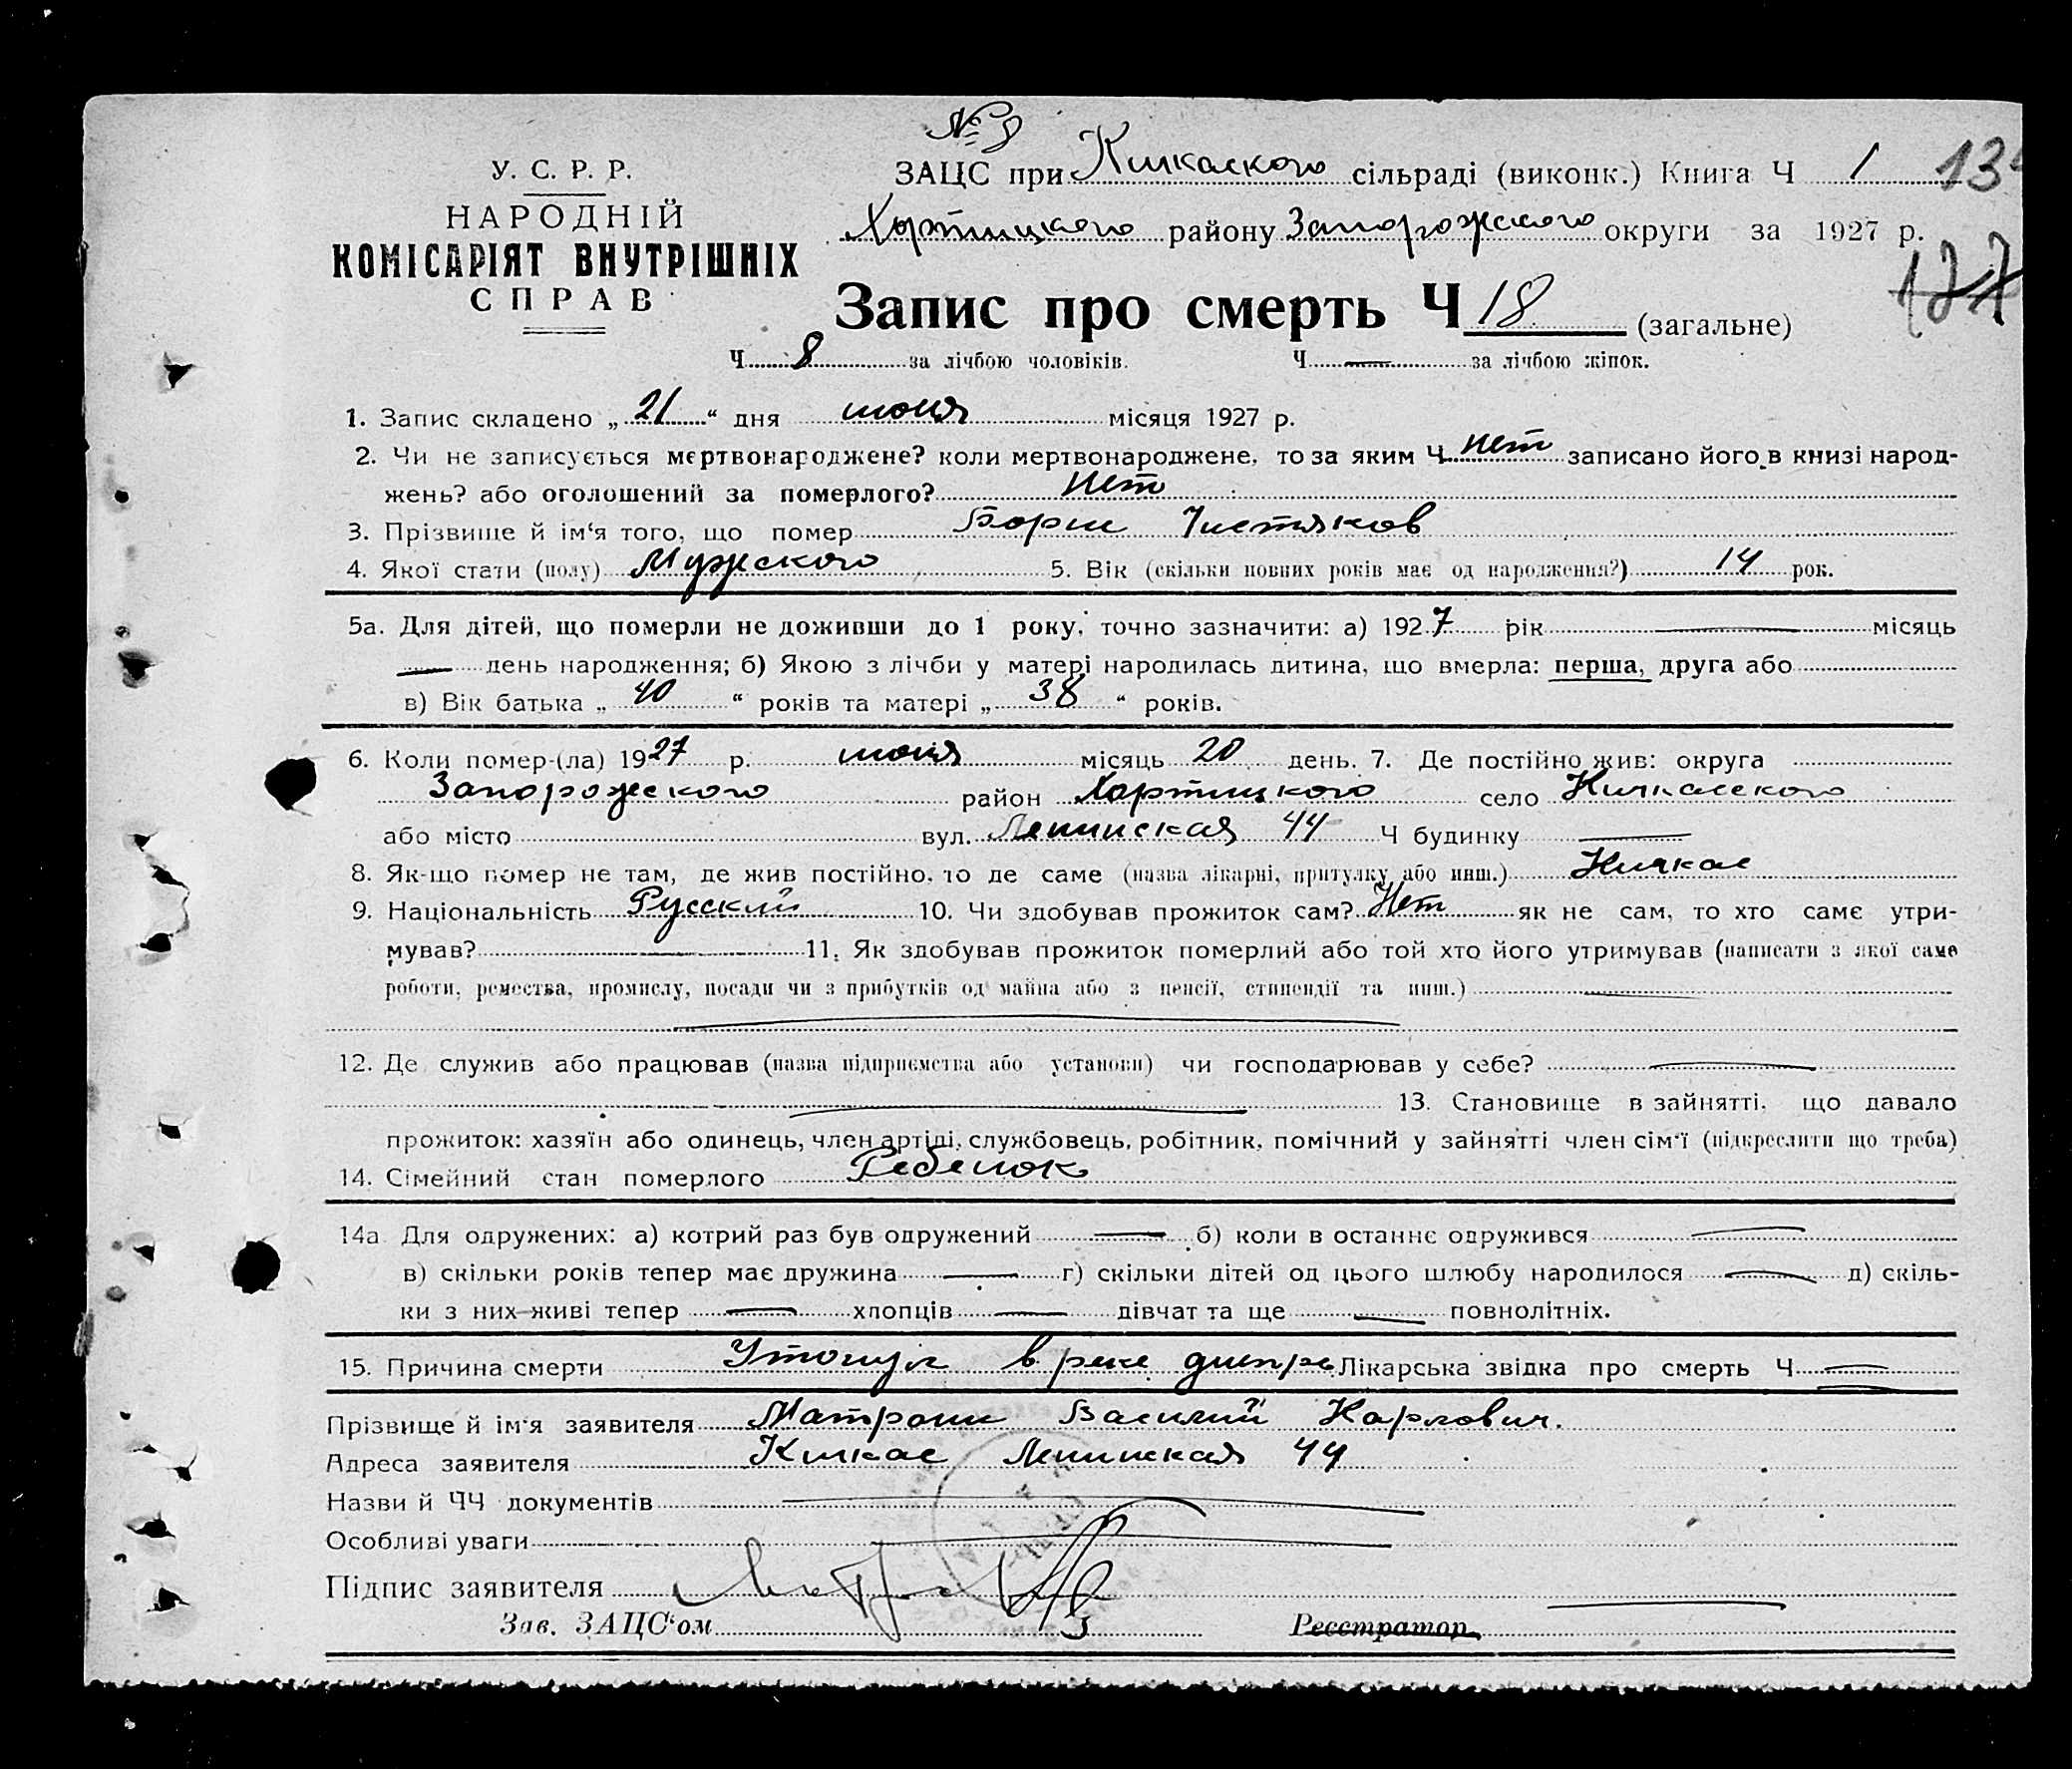 № 8
У. С. Р. Р.
НАРОДНІЙ
КОМІСАРІЯТ ВНУТРІШНІХ
СПРАВ
ЗАЦС при Кичкаского сільраді (виконк.) Книга Ч 1 13
Хортицкого району Запорожского округи за 1927 р.
177
Запис про смерть Ч 18 (загальне)
Ч 8 за лічбою чоловіків. Ч — за лічбою жінок.
1. Запис складено „ 21 “ дня июня місяця 1927 р.
2. Чи не записується мертвонароджене? коли мертвонароджене, то за яким Ч нет записано його в книзі народ-
жень? або оголошений за померлого? Нет
3. Прізвище й ім‘я того, що помер Борис Чистяков
4. Якої стати (полу) Мужского 5. Вік (скільки повних років має од народження?) 14 рок.
5а. Для дітей, що померли не доживши до 1 року, точно зазначити: а) 1927 рік — місяць
— день народження; б) Якою з лічби у матері народилась дитина, що вмерла: перша, друга або
в) Вік батька „ 40 “ років та матері „ 38 “ років.
6. Коли помер-(ла) 1927 р. июня місяць 20 день. 7. Де постійно жив: округа
Запорожского район Хортицкого село Кичкасского
або місто вул. Ленинская 44 Ч будинку —
8. Як-що помер не там, де жив постійно, то де саме (назва лікарні, притулку або инш.) Кичкас
9. Національність Русский 10. Чи здобував прожиток сам? Нет як не сам, то хто саме утри-
мував? — 11. Як здобував прожиток померлий або той хто його утримував (написати з якої саме
роботи, ремества, промислу, посади чи з прибутків од майна або з пенсії, стипендії та инш.) —
12. Де служив або працював (назва підприємства або установи) чи господарював у себе? —
— 13. Становище в зайнятті, що давало
прожиток: хазяїн або одинець, член артілі, службовець, робітник, помічний у зайнятті член сім‘ї (підкреслити що треба)
14. Сімейний стан померлого Ребенок
14а Для одружених: а) котрий раз був одружений — б) коли в останнє одружився —
в) скільки років тепер має дружина — г) скільки дітей од цього шлюбу народилося — д) скіль-
ки з них живі тепер — хлопців — дівчат та ще — повнолітніх.
15. Причина смерти Утонул в реке днепре Лікарська звідка про смерть Ч —
Прізвище й ім‘я заявителя Матрони Василий Карлович.
Адреса заявителя Кичкас Ленинская 44
Назви й ЧЧ документів —
Особливі уваги —
Підпис заявителя
Зав. ЗАЦС‘ом Реєстратор